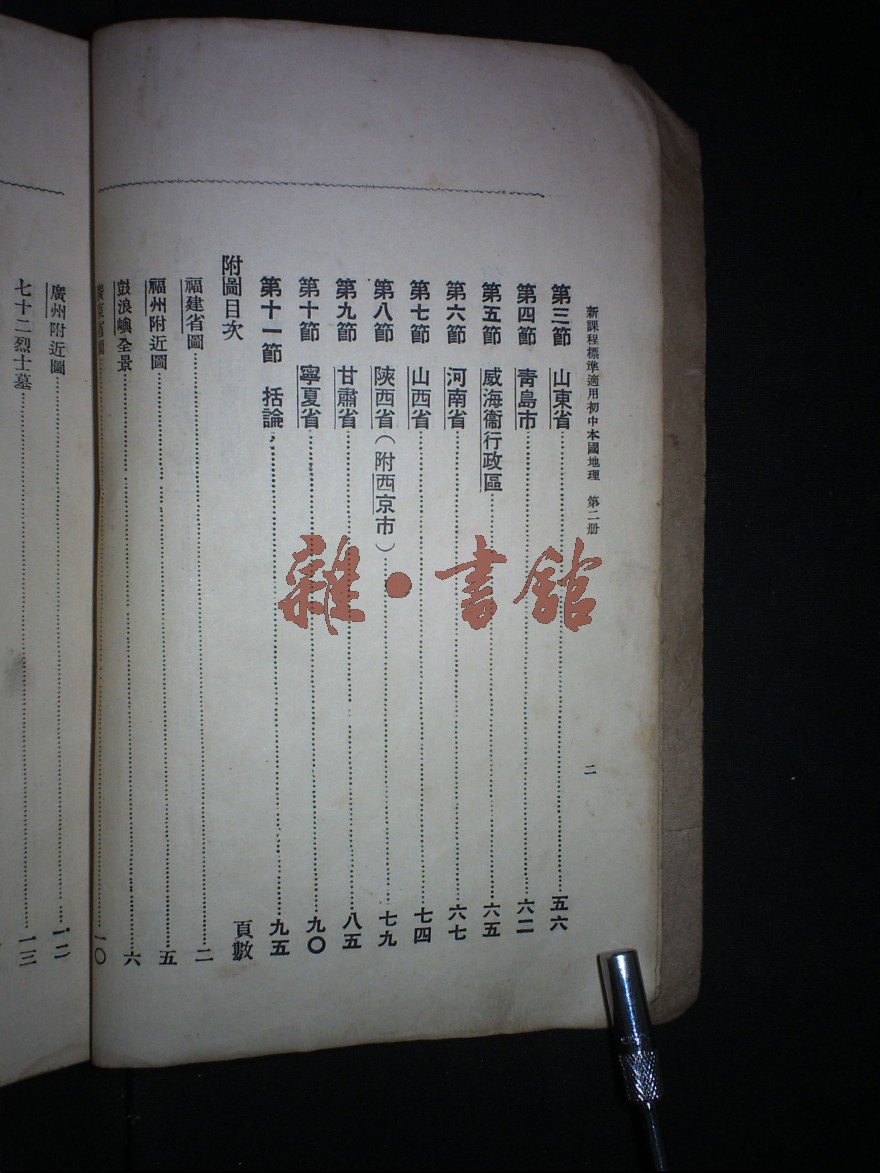 新課程標準適用初中本國地理 第二册
二
第三節 山東省……五六
第四節 青島市……六二
第五節 威海衞行政區……六五
第六節 河南省……六七
第七節 山西省……七四
第八節 陝西省（附西京市）……七九
第九節 甘肅省……八五
第十節 寧夏省……九〇
第十一節 括論……九五
附圖目次 頁數
福建省圖……二
福州附近圖……五
鼓浪嶼全景……六
廣東省圖……一〇
廣州附近圖……一二
七十二烈士墓……一三
雜·書館